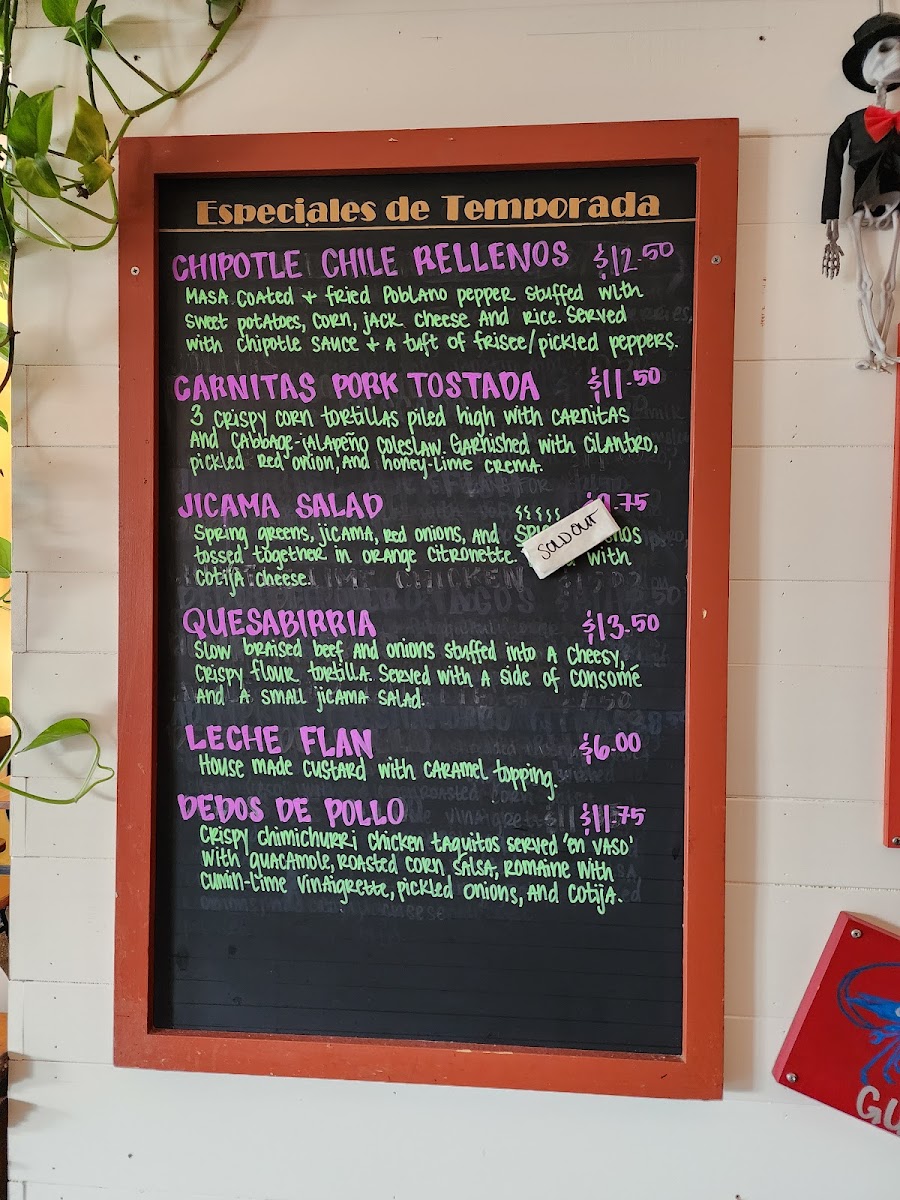 Especiales de Temporada
CHIPOTLE CHILE RELLENOS $12.50
MASA COATED + FRIED POBLANO PEPPER STUFFED WITH
SWEET POTATOES, CORN, JACK CHEESE AND RICE. SERVED
WITH CHIPOTLE SAUCE + A TUFT OF FRISEE/PICKLED PEPPERS.
CARNITAS PORK TOSTADA $11.50
3 CRISPY CORN TORTILLAS PILED HIGH WITH CARNITAS
AND CABBAGE-JALAPEÑO COLESLAW. GARNISHED WITH CILANTRO,
PICKLED RED ONION, AND HONEY-LIME CREMA.
JICAMA SALAD .75
SPRING GREENS, JICAMA, RED ONIONS, AND
SOLD OUT
TOSSED TOGETHER IN ORANGE CITRONETTE. WITH
COTIJA CHEESE.
QUESABIRRIA $13.50
SLOW BRAISED BEEF AND ONIONS STUFFED INTO A CHEESY,
CRISPY FLOUR TORTILLA. SERVED WITH A SIDE OF CONSOMÉ
AND A SMALL JICAMA SALAD.
LECHE FLAN $6.00
HOUSE MADE CUSTARD WITH CARAMEL TOPPING.
DEDOS DE POLLO $11.75
CRISPY CHIMICHURRI CHICKEN TAQUITOS SERVED 'EN VASO'
WITH GUACAMOLE, ROASTED CORN SALSA, ROMAINE WITH
CUMIN-LIME VINAIGRETTE, PICKLED ONIONS, AND COTIJA.
GU